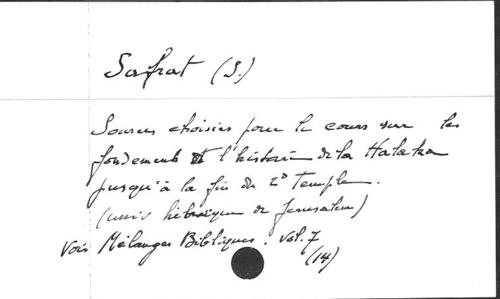 Safrat (S.)
Sources choisies pour le cours sur les
fondements et l'histoire de la Halaka
jusqu'à la fin du 2d Temple.
(univ hébraïque de Jerusalem)
Voir Mélanges Bibliques. vol. 7
(14)